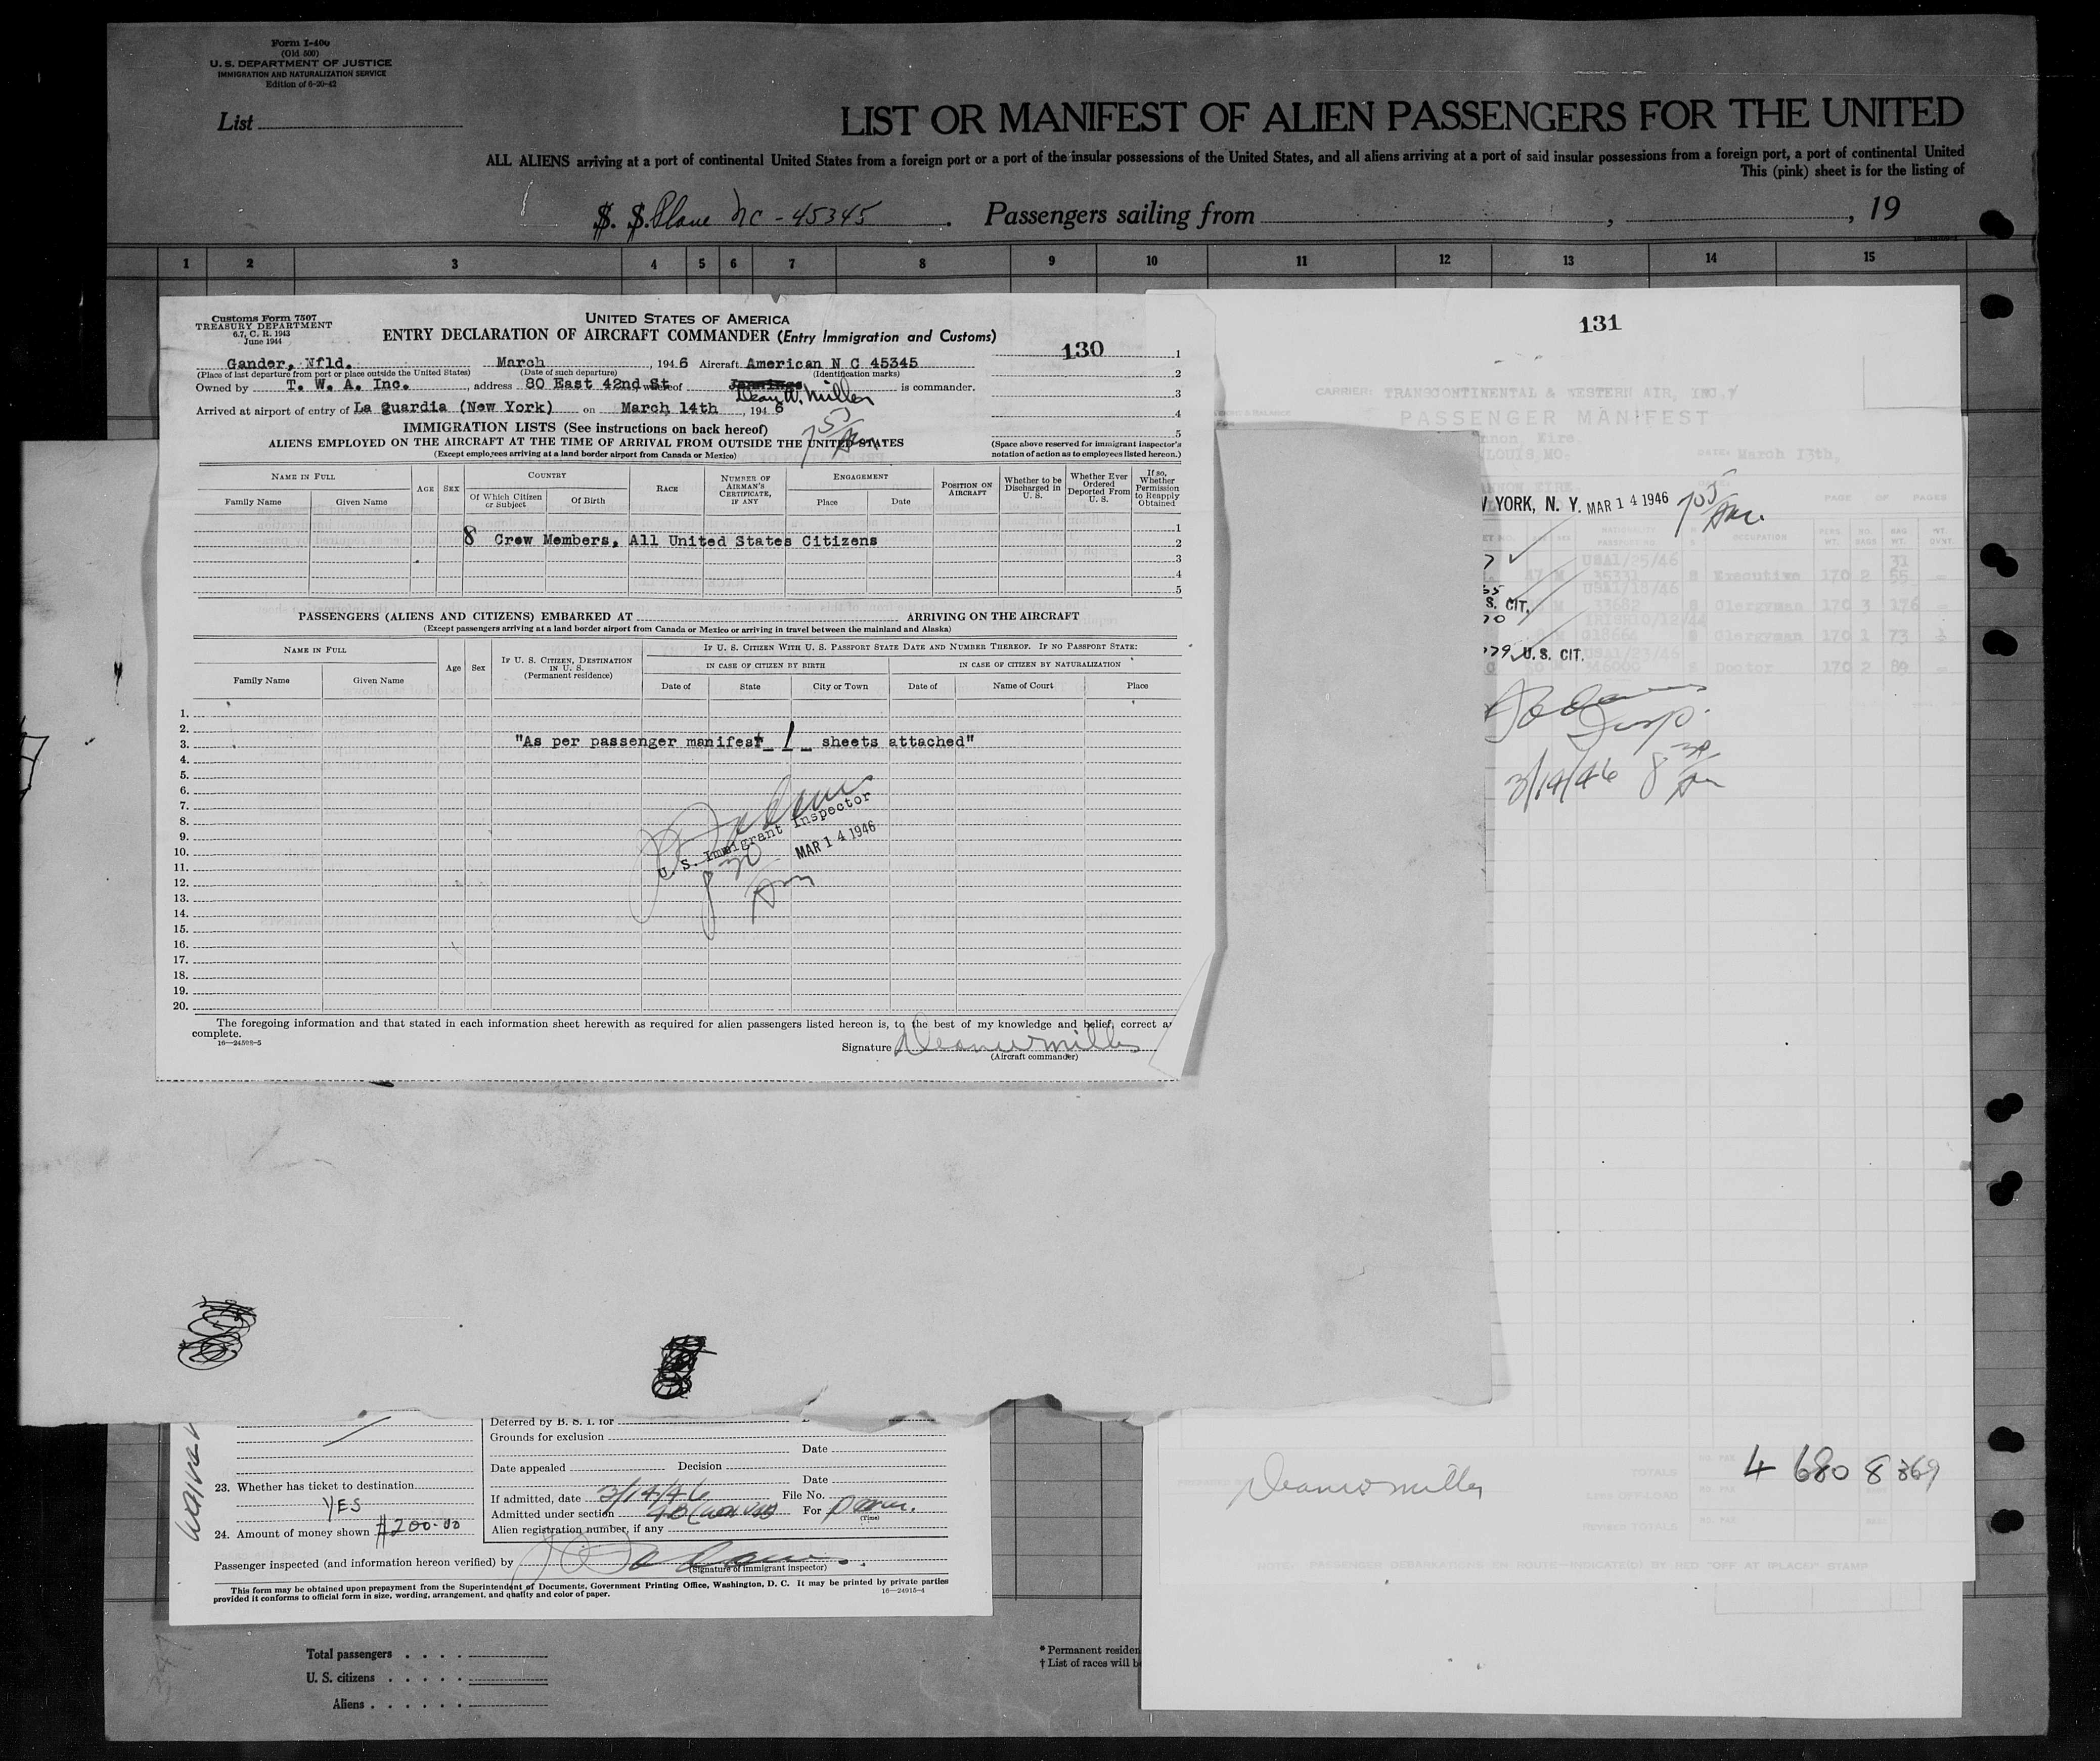 Form I-400
(Old 500)
U. S. DEPARTMENT OF JUSTICE
IMMIGRATION AND NATURALIZATION SERVICE
Edition of 6-20-42
List
LIST OR MANIFEST OF ALIEN PASSENGERS FOR THE UNITED
ALL ALIENS arriving at a port of continental United States from a foreign port or a port of the insular possessions of the United States, and all aliens arriving at a port of said insular possessions from a foreign port, a port of continental United
This (pink) sheet is for the listing of
S. S. Plane NC-45345. Passengers sailing from , , 19
1 2 3 4 5 6 7 8 9 10 11 12 13 14 15
Customs Form 7507
TREASURY DEPARTMENT
6.7, C. R. 1943
June 1944
UNITED STATES OF AMERICA
ENTRY DECLARATION OF AIRCRAFT COMMANDER (Entry Immigration and Customs)
130
Gander, Nfld. March , 1946 Aircraft American N C 45345
(Place of last departure from port or place outside the United States) (Date of such departure) (Identification marks)
Owned by T. W. A. Inc. , address 80 East 42nd St whereof Jennings is commander.
Dean W. Miller
Arrived at airport of entry of La Guardia (New York) on March 14th , 1946
IMMIGRATION LISTS (See instructions on back hereof)
ALIENS EMPLOYED ON THE AIRCRAFT AT THE TIME OF ARRIVAL FROM OUTSIDE THE UNITED STATES
(Except employees arriving at a land border airport from Canada or Mexico)
1
2
3
4
5
(Space above reserved for immigrant inspector's
notation of action as to employees listed hereon.)
NAME IN FULL
Family Name Given Name
AGE SEX
COUNTRY
Of Which Citizen or Subject
Of Birth
RACE
NUMBER OF AIRMAN'S CERTIFICATE, IF ANY
ENGAGEMENT
Place Date
POSITION ON AIRCRAFT
Whether to be Discharged in U. S.
Whether Ever Ordered Deported From U. S.
If so, Whether Permission to Reapply Obtained
1
8 Crew Members, All United States Citizens 2
3
4
5
PASSENGERS (ALIENS AND CITIZENS) EMBARKED AT ARRIVING ON THE AIRCRAFT
(Except passengers arriving at a land border airport from Canada or Mexico or arriving in travel between the mainland and Alaska)
NAME IN FULL
Family Name Given Name
Age Sex
IF U. S. CITIZEN, DESTINATION IN U. S.
(Permanent residence)
IF U. S. CITIZEN WITH U. S. PASSPORT STATE DATE AND NUMBER THEREOF. IF NO PASSPORT STATE:
IN CASE OF CITIZEN BY BIRTH IN CASE OF CITIZEN BY NATURALIZATION
Date of State City or Town Date of Name of Court Place
1.
2.
3. "As per passenger manifest 1 sheets attached"
4.
5.
6.
7.
8.
9.
10.
11.
12.
13.
14.
15.
16.
17.
18.
19.
20.
U. S. Immigrant Inspector
MAR 14 1946
8 30 Am
The foregoing information and that stated in each information sheet herewith as required for alien passengers listed hereon is, to the best of my knowledge and belief, correct
complete.
16—24598-5
Signature Dean W Miller
(Aircraft commander)
131
CARRIER: TRANSCONTINENTAL & WESTERN AIR, INC.
PASSENGER MANIFEST
DATE: March 13th,
YORK, N. Y. MAR 14 1946
PAGE OF PAGES
OCCUPATION
USA1/25/46
47 M S Executive 170 2 55
USA1/18/46
S. CIT. M 33682 S Clergyman 170 3 176
018664 S Clergyman 170 1 73
U. S. CIT. USA1/23/46
S Doctor 170 2 89
Insp.
3/14/46 8 30 Am
Dean W Miller
4 680 8 369
TOTALS
LESS OFF-LOAD
REVISED TOTALS
Deferred by B. S. I. for
Grounds for exclusion
Date
Date appealed Decision
Date
23. Whether has ticket to destination
YES
24. Amount of money shown $200.00
If admitted, date 3/14/46 File No.
Admitted under section For perm.
(Time)
Alien registration number, if any
Passenger inspected (and information hereon verified) by
(Signature of immigrant inspector)
This form may be obtained upon prepayment from the Superintendent of Documents, Government Printing Office, Washington, D. C. It may be printed by private parties
provided it conforms to official form in size, wording, arrangement, and quality and color of paper.
16—24915-4
Total passengers
U. S. citizens
Aliens
* Permanent residen
† List of races will b